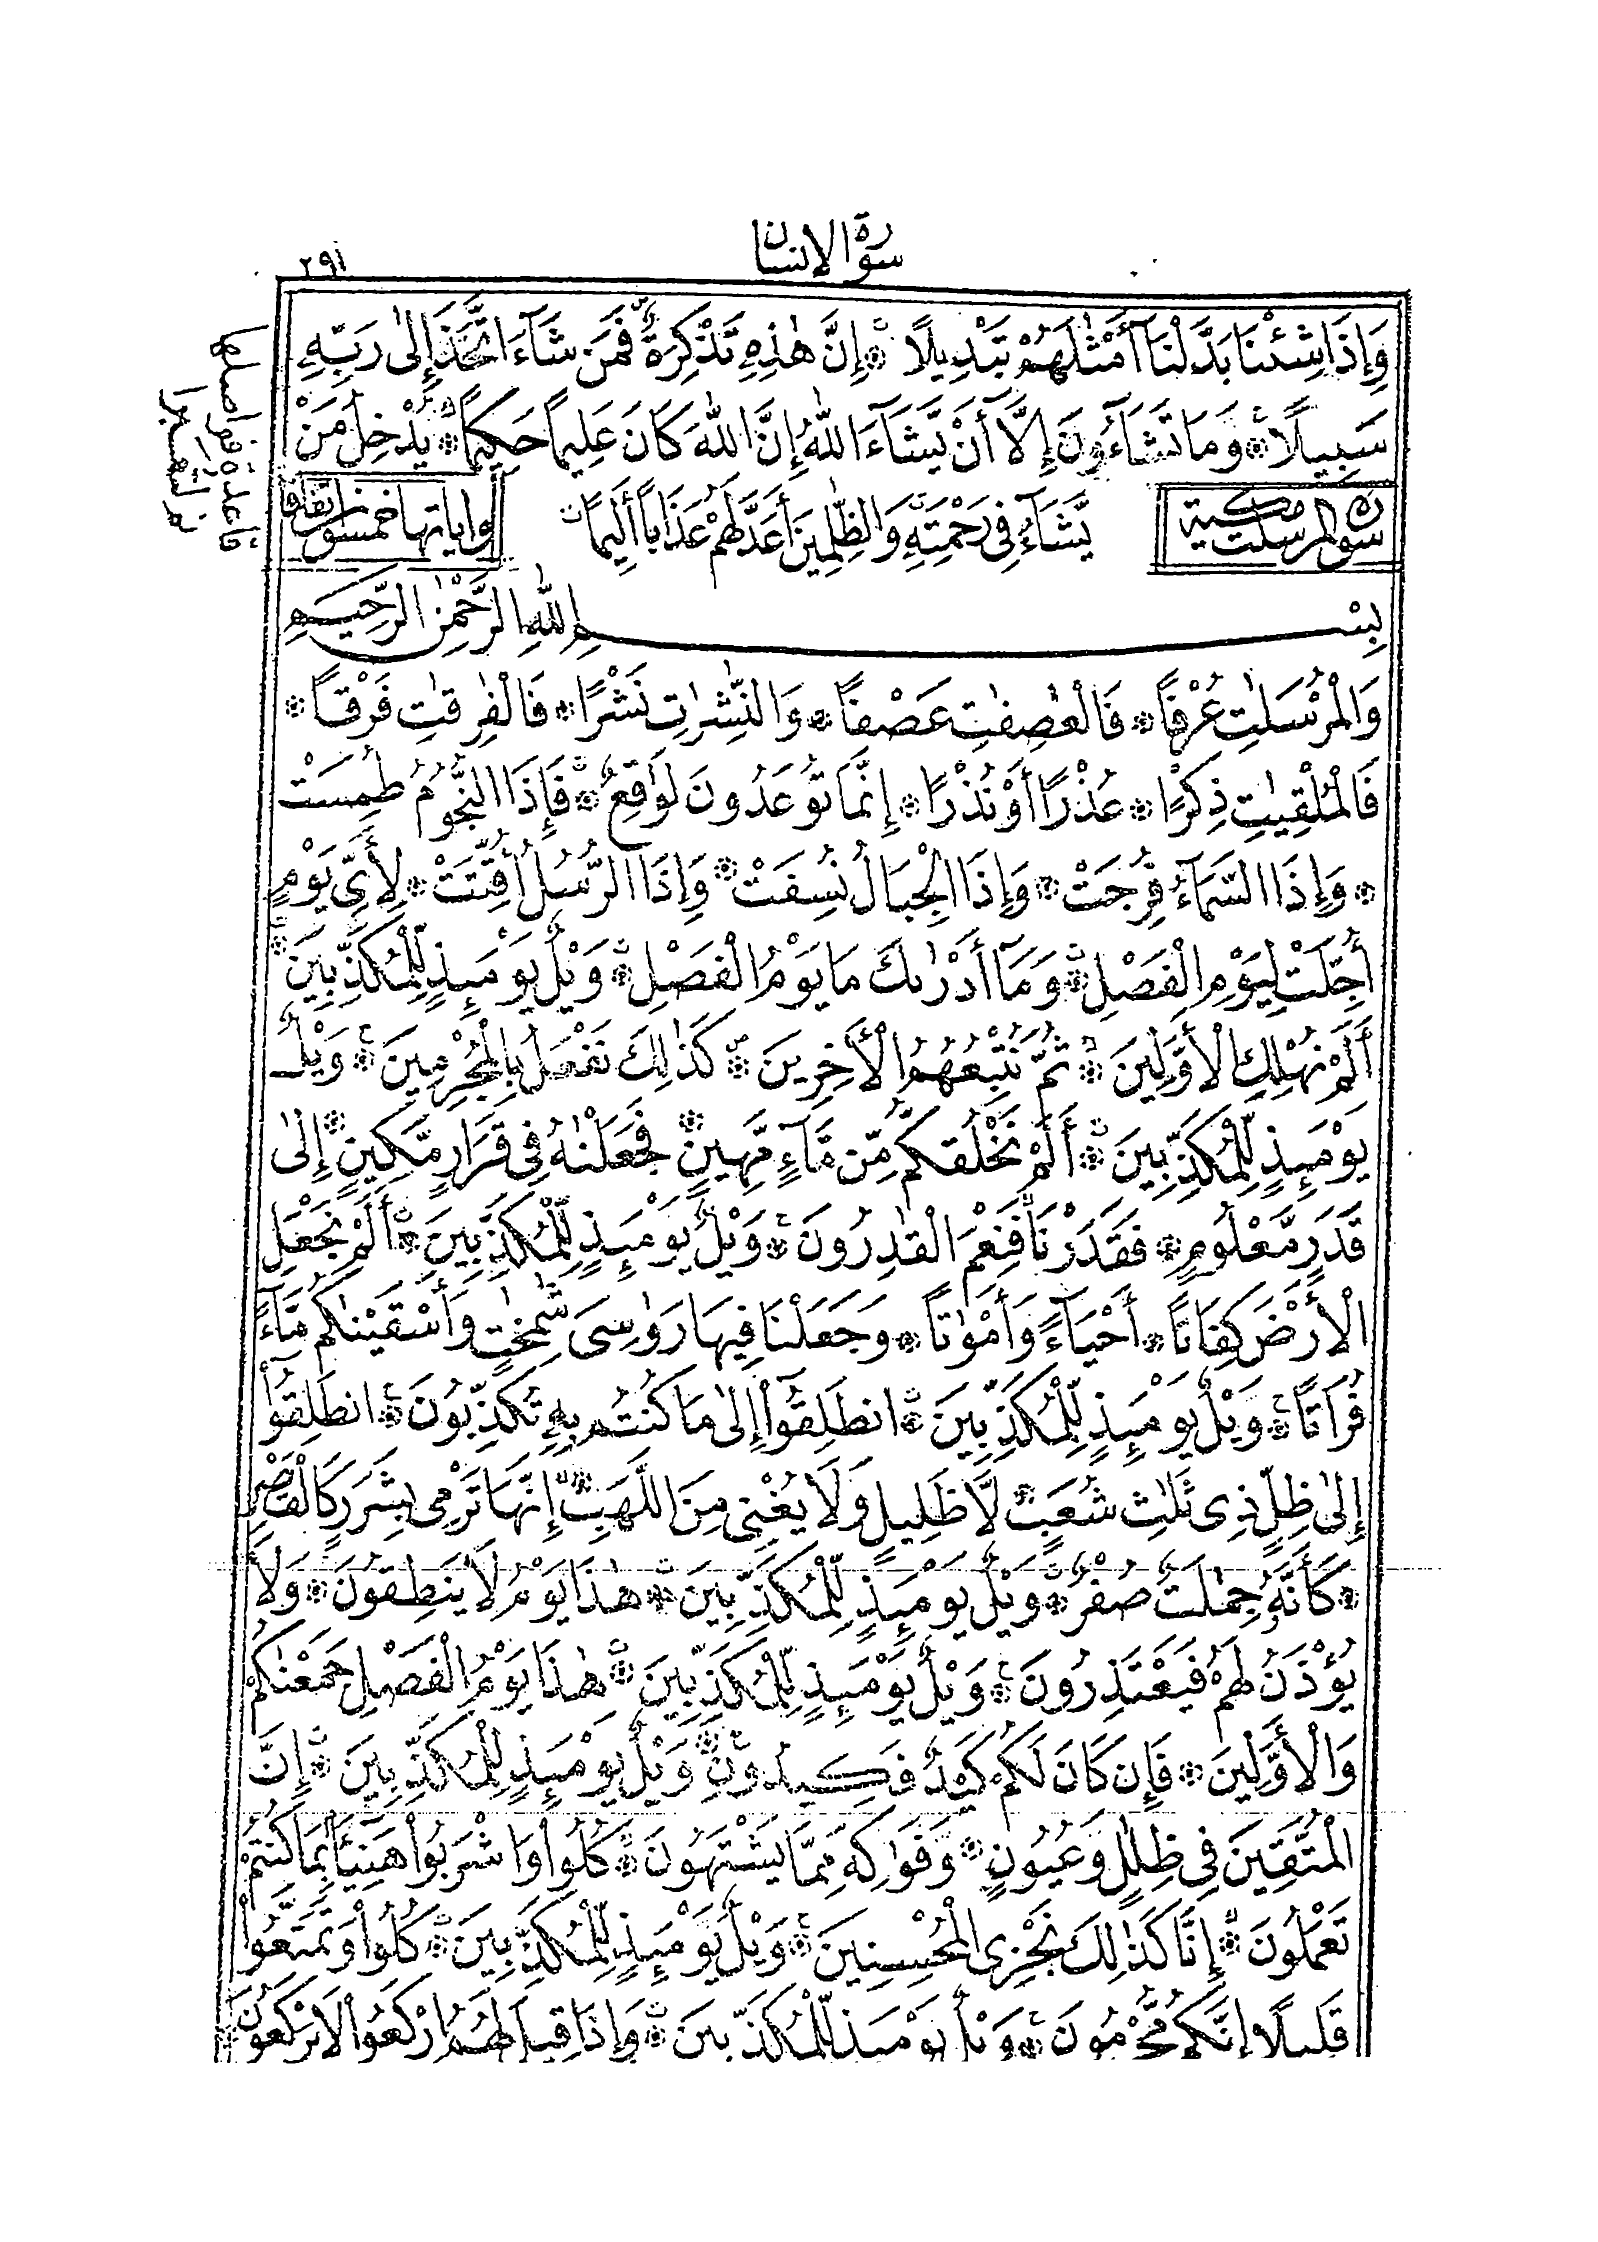 سورة الإنسان
٢٩١
وَإِذَا شِئْنَا بَدَّلْنَا أَمْثَٰلَهُمْ تَبْدِيلًا ۞ إِنَّ هَٰذِهِ تَذْكِرَةٌ فَمَن شَآءَ اتَّخَذَ إِلَىٰ رَبِّهِ
سَبِيلًا ۞ وَمَا تَشَآءُونَ إِلَّآ أَنْ يَّشَآءَ اللَّهُ إِنَّ اللَّهَ كَانَ عَلِيمًا حَكِيمًا ۞ يُدْخِلُ مَنْ
يَّشَآءُ فِي رَحْمَتِهِ وَالظَّٰلِمِينَ أَعَدَّ لَهُمْ عَذَابًا أَلِيمًا
سورة المرسلت مكية
وآياتها خمسون
بِسْمِ اللَّهِ الرَّحْمَٰنِ الرَّحِيمِ
وَالْمُرْسَلَٰتِ عُرْفًا ۞ فَالْعَٰصِفَٰتِ عَصْفًا ۞ وَالنَّٰشِرَٰتِ نَشْرًا ۞ فَالْفَٰرِقَٰتِ فَرْقًا ۞
فَالْمُلْقِيَٰتِ ذِكْرًا ۞ عُذْرًا أَوْ نُذْرًا ۞ إِنَّمَا تُوعَدُونَ لَوَٰقِعٌ ۞ فَإِذَا النُّجُومُ طُمِسَتْ
۞ وَإِذَا السَّمَآءُ فُرِجَتْ ۞ وَإِذَا الْجِبَالُ نُسِفَتْ ۞ وَإِذَا الرُّسُلُ أُقِّتَتْ ۞ لِأَيِّ يَوْمٍ
أُجِّلَتْ ۞ لِيَوْمِ الْفَصْلِ ۞ وَمَآ أَدْرَىٰكَ مَا يَوْمُ الْفَصْلِ ۞ وَيْلٌ يَّوْمَئِذٍ لِّلْمُكَذِّبِينَ ۞
أَلَمْ نُهْلِكِ الْأَوَّلِينَ ۞ ثُمَّ نُتْبِعُهُمُ الْأَخِرِينَ ۞ كَذَٰلِكَ نَفْعَلُ بِالْمُجْرِمِينَ ۞ وَيْلٌ
يَوْمَئِذٍ لِّلْمُكَذِّبِينَ ۞ أَلَمْ نَخْلُقكُّم مِّن مَّآءٍ مَّهِينٍ ۞ فَجَعَلْنَٰهُ فِي قَرَارٍ مَّكِينٍ ۞ إِلَىٰ
قَدَرٍ مَّعْلُومٍ ۞ فَقَدَرْنَا فَنِعْمَ الْقَٰدِرُونَ ۞ وَيْلٌ يَّوْمَئِذٍ لِّلْمُكَذِّبِينَ ۞ أَلَمْ نَجْعَلِ
الْأَرْضَ كِفَاتًا ۞ أَحْيَآءً وَأَمْوَٰتًا ۞ وَجَعَلْنَا فِيهَا رَوَٰسِيَ شَٰمِخَٰتٍ وَأَسْقَيْنَٰكُم مَّآءً
فُرَاتًا ۞ وَيْلٌ يَّوْمَئِذٍ لِّلْمُكَذِّبِينَ ۞ انطَلِقُوٓا إِلَىٰ مَا كُنتُم بِهِ تُكَذِّبُونَ ۞ انطَلِقُوٓا
إِلَىٰ ظِلٍّ ذِي ثَلَٰثِ شُعَبٍ ۞ لَّا ظَلِيلٍ وَلَا يُغْنِي مِنَ اللَّهَبِ ۞ إِنَّهَا تَرْمِي بِشَرَرٍ كَالْقَصْرِ
۞ كَأَنَّهُ جِمَٰلَتٌ صُفْرٌ ۞ وَيْلٌ يَّوْمَئِذٍ لِّلْمُكَذِّبِينَ ۞ هَٰذَا يَوْمُ لَا يَنطِقُونَ ۞ وَلَا
يُؤْذَنُ لَهُمْ فَيَعْتَذِرُونَ ۞ وَيْلٌ يَّوْمَئِذٍ لِّلْمُكَذِّبِينَ ۞ هَٰذَا يَوْمُ الْفَصْلِ جَمَعْنَٰكُمْ
وَالْأَوَّلِينَ ۞ فَإِن كَانَ لَكُمْ كَيْدٌ فَكِيدُونِ ۞ وَيْلٌ يَّوْمَئِذٍ لِّلْمُكَذِّبِينَ ۞ إِنَّ
الْمُتَّقِينَ فِي ظِلَٰلٍ وَعُيُونٍ ۞ وَفَوَٰكِهَ مِمَّا يَشْتَهُونَ ۞ كُلُوا وَاشْرَبُوا هَنِيٓـًٔا بِمَا كُنتُمْ
تَعْمَلُونَ ۞ إِنَّا كَذَٰلِكَ نَجْزِي الْمُحْسِنِينَ ۞ وَيْلٌ يَّوْمَئِذٍ لِّلْمُكَذِّبِينَ ۞ كُلُوا وَتَمَتَّعُوا
قَلِيلًا إِنَّكُم مُّجْرِمُونَ ۞ وَيْلٌ يَّوْمَئِذٍ لِّلْمُكَذِّبِينَ ۞ وَإِذَا قِيلَ لَهُمُ ارْكَعُوا لَا يَرْكَعُونَ